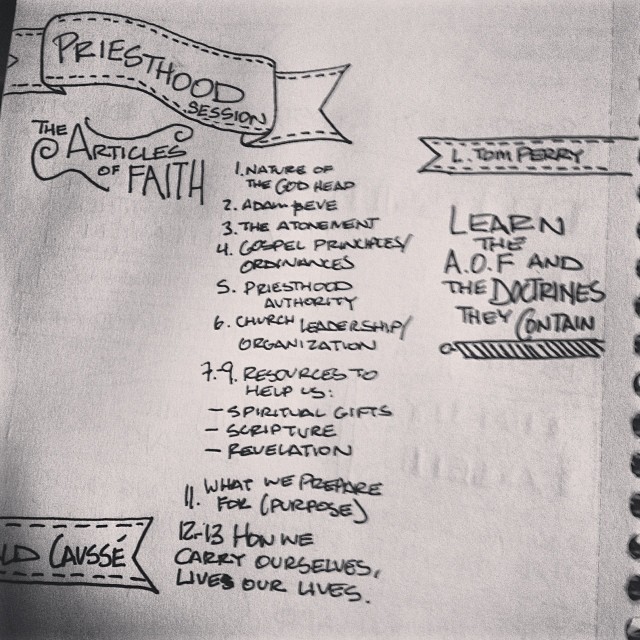 PRIESTHOOD
SESSION
THE ARTICLES
OF FAITH
1. NATURE OF
THE GOD HEAD
2. ADAM & EVE
3. THE ATONEMENT
4. GOSPEL PRINCIPLES/
ORDINANCES
5. PRIESTHOOD
AUTHORITY
6. CHURCH LEADERSHIP/
ORGANIZATION
7-9. RESOURCES TO
HELP US:
- SPIRITUAL GIFTS
- SCRIPTURE
- REVELATION
11. WHAT WE PREPARE
FOR (PURPOSE)
12-13 HOW WE
CARRY OURSELVES,
LIVES OUR LIVES.
L. TOM PERRY
LEARN
THE
A.O.F AND
THE DOCTRINES
THEY CONTAIN
LD CAUSSÉ